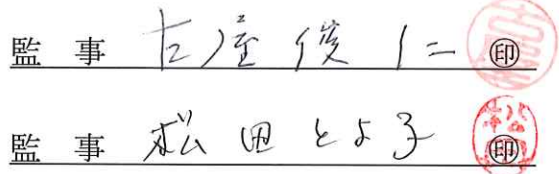 監 事 古屋俊仁 ㊞
監 事 松田とよ子 ㊞